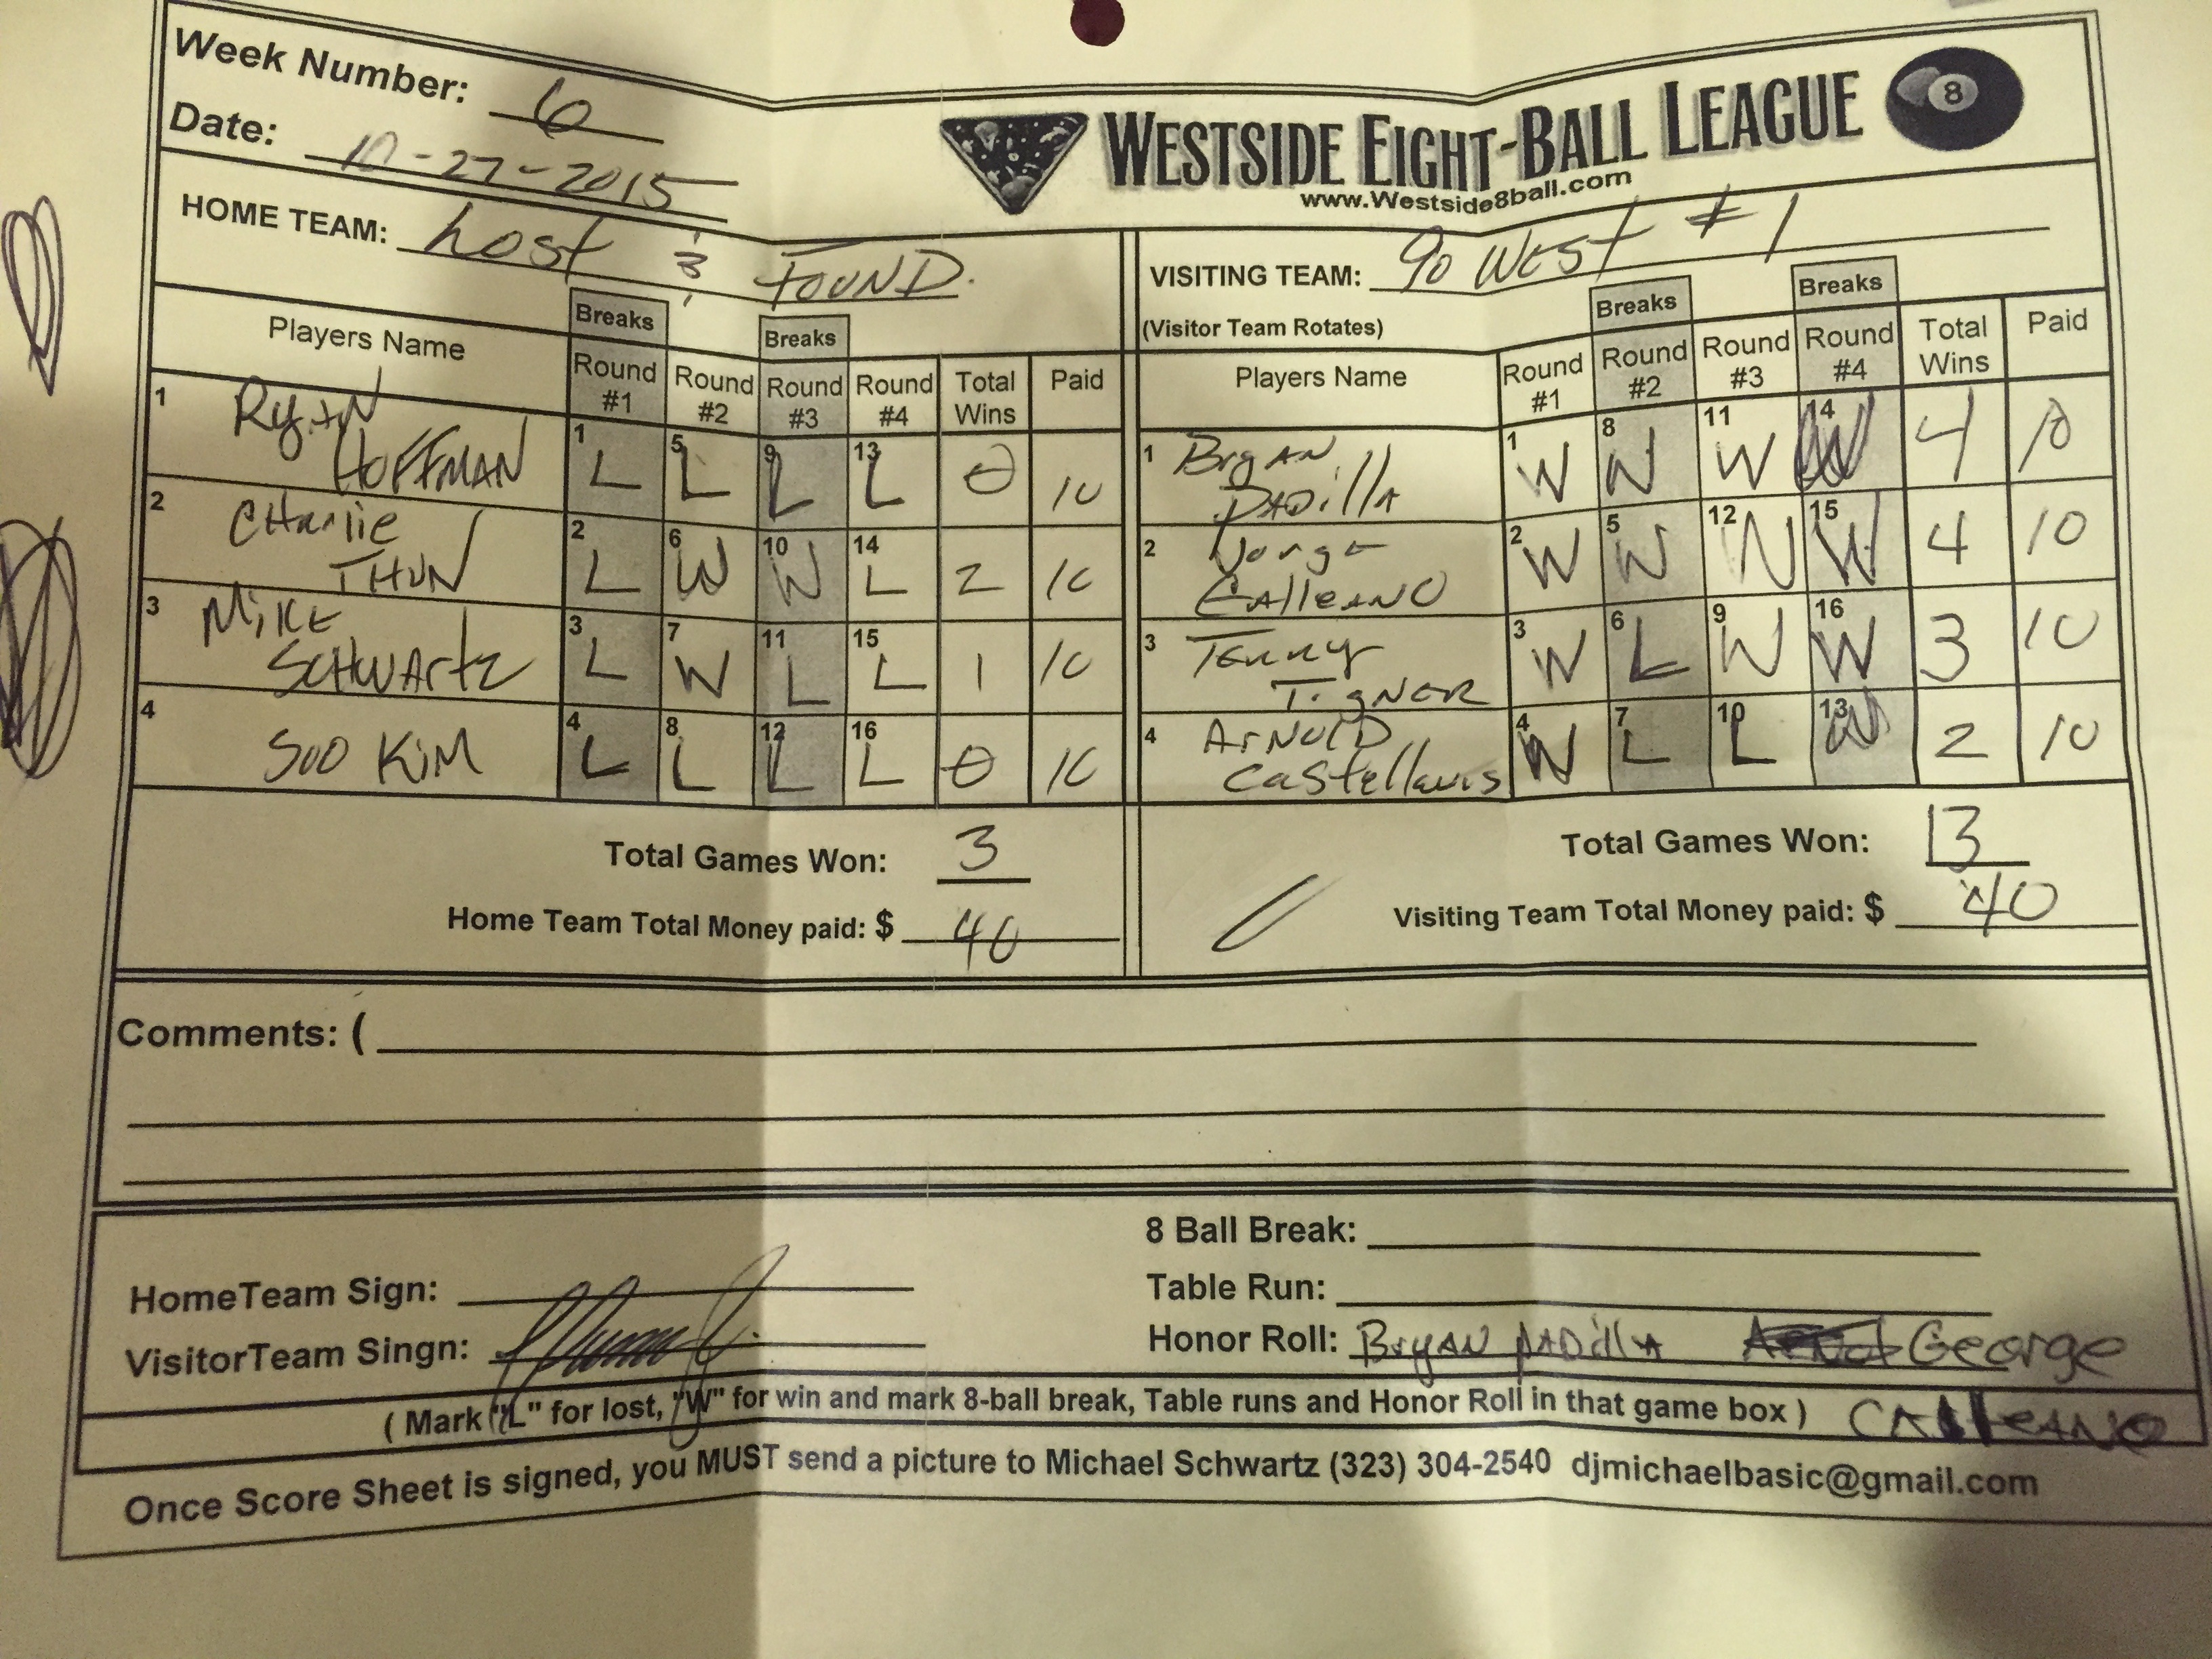 Week Number: 6
Date: 10-27-2015
WESTSIDE EIGHT-BALL LEAGUE 8
www.Westside8ball.com
HOME TEAM: Lost & FOUND.
VISITING TEAM: 90 WEST #1
(Visitor Team Rotates)
Breaks Breaks Breaks Breaks
Players Name Round #1 Round #2 Round #3 Round #4 Total Wins Paid
1 Ryan HOFFMAN 1 L 5 L 9 L 13 L 0 10
2 CHarlie THUN 2 L 6 W 10 W 14 L 2 10
3 MiKE SCHWArtz 3 L 7 W 11 L 15 L 1 10
4 SOO KiM 4 L 8 L 12 L 16 L 0 10
Total Games Won: 3
Home Team Total Money paid: $ 40
Players Name Round #1 Round #2 Round #3 Round #4 Total Wins Paid
1 BryAN PADillA 1 W 8 W 11 W 14 W 4 10
2 Jorge GAlleANO 2 W 5 W 12 W 15 W 4 10
3 TENNY TigNER 3 W 6 L 9 W 16 W 3 10
4 ArNOlD 4 W 7 L 10 L 13 W 2 10
Total Games Won: 13
Visiting Team Total Money paid: $ 40
Comments: (
HomeTeam Sign:
VisitorTeam Singn:
8 Ball Break:
Table Run:
Honor Roll: BryAN pADillA George
CAlleANO
( Mark "L" for lost, "W" for win and mark 8-ball break, Table runs and Honor Roll in that game box )
Once Score Sheet is signed, you MUST send a picture to Michael Schwartz (323) 304-2540 djmichaelbasic@gmail.com